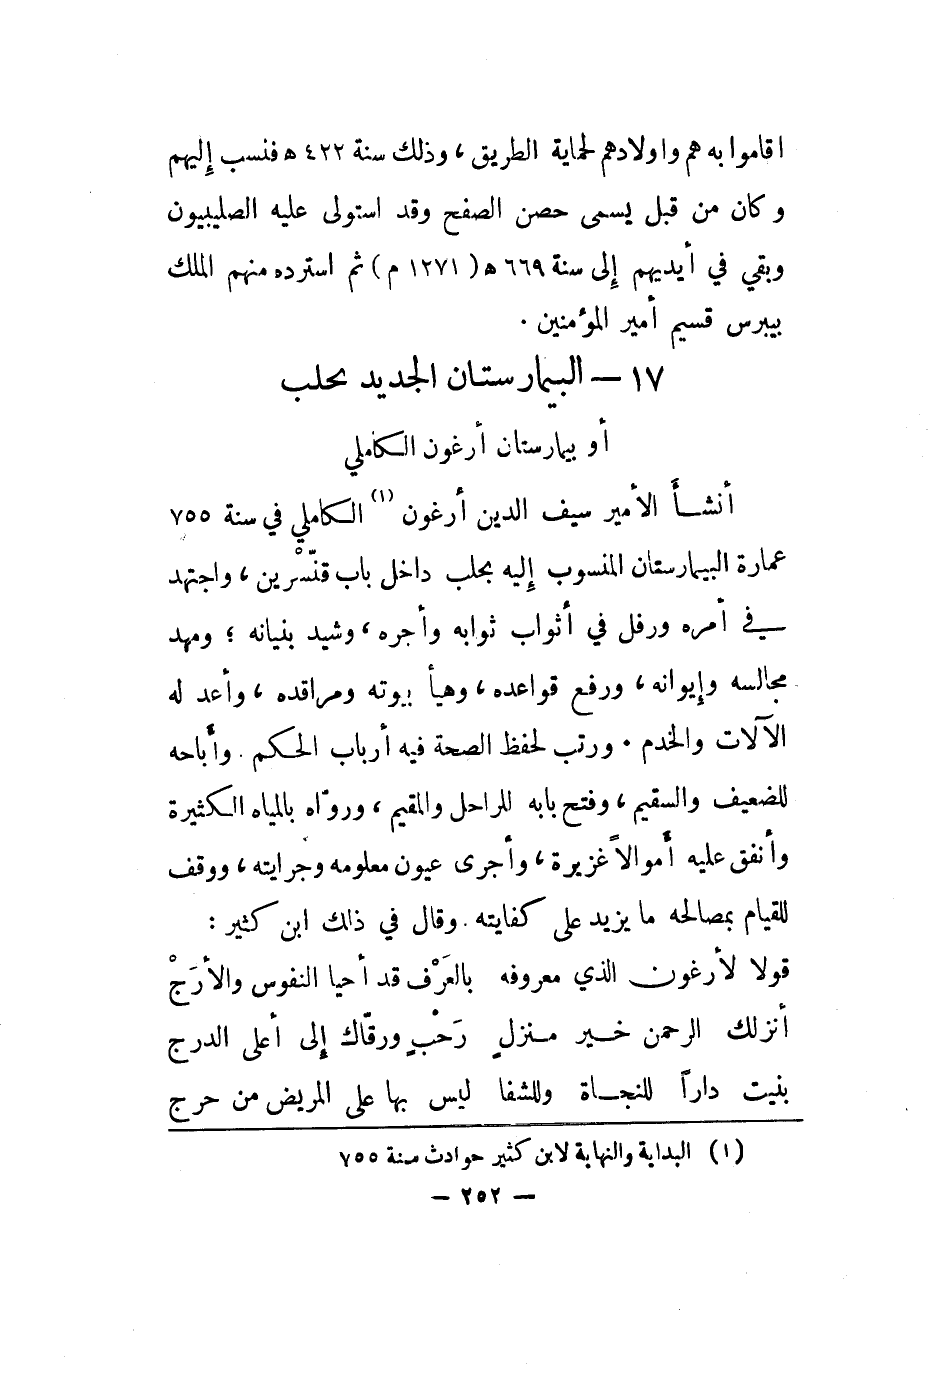 اقاموا به هم واولادهم لحماية الطريق ، وذلك سنة ٤٢٢ ه فنسب إليهم
وكان من قبل يسمى حصن الصفح وقد استولى عليه الصليبيون
وبقي في أيديهم إلى سنة ٦٦٩ ه ( ١٢٧١ م ) ثم استرده منهم الملك
بيبرس قسيم أمير المؤمنين .
١٧ — البيمارستان الجديد بحلب
أو بيمارستان أرغون الكاملي
أنشأ الأمير سيف الدين أرغون (١) الكاملي في سنة ٧٥٥
عمارة البيمارستان المنسوب إليه بحلب داخل باب قنّسْرين ، واجتهد
في أمره ورفل في أثواب ثوابه وأجره ، وشيد بنيانه ؛ ومهد
مجالسه وإيوانه ، ورفع قواعده ، وهيأ بيوته ومراقده ، وأعد له
الآلات والخدم . ورتب لحفظ الصحة فيه أرباب الحكم . وأباحه
للضعيف والسقيم ، وفتح بابه للراحل والمقيم ، وروّاه بالمياه الكثيرة
وأنفق عليه أموالاً غزيرة ، وأجرى عيون معلومه وجرايته ، ووقف
للقيام بمصالحه ما يزيد على كفايته . وقال في ذلك ابن كثير :
قولا لأرغون الذي معروفه بالعَرْف قد أحيا النفوس والأرَجْ
أنزلك الرحمن خير منزلٍ رَحْبٍ ورقّاك إلى أعلى الدرج
بنيت داراً للنجاة وللشفا ليس بها على المريض من حرج
(١) البداية والنهاية لابن كثير حوادث سنة ٧٥٥
— ٢٥٢ —